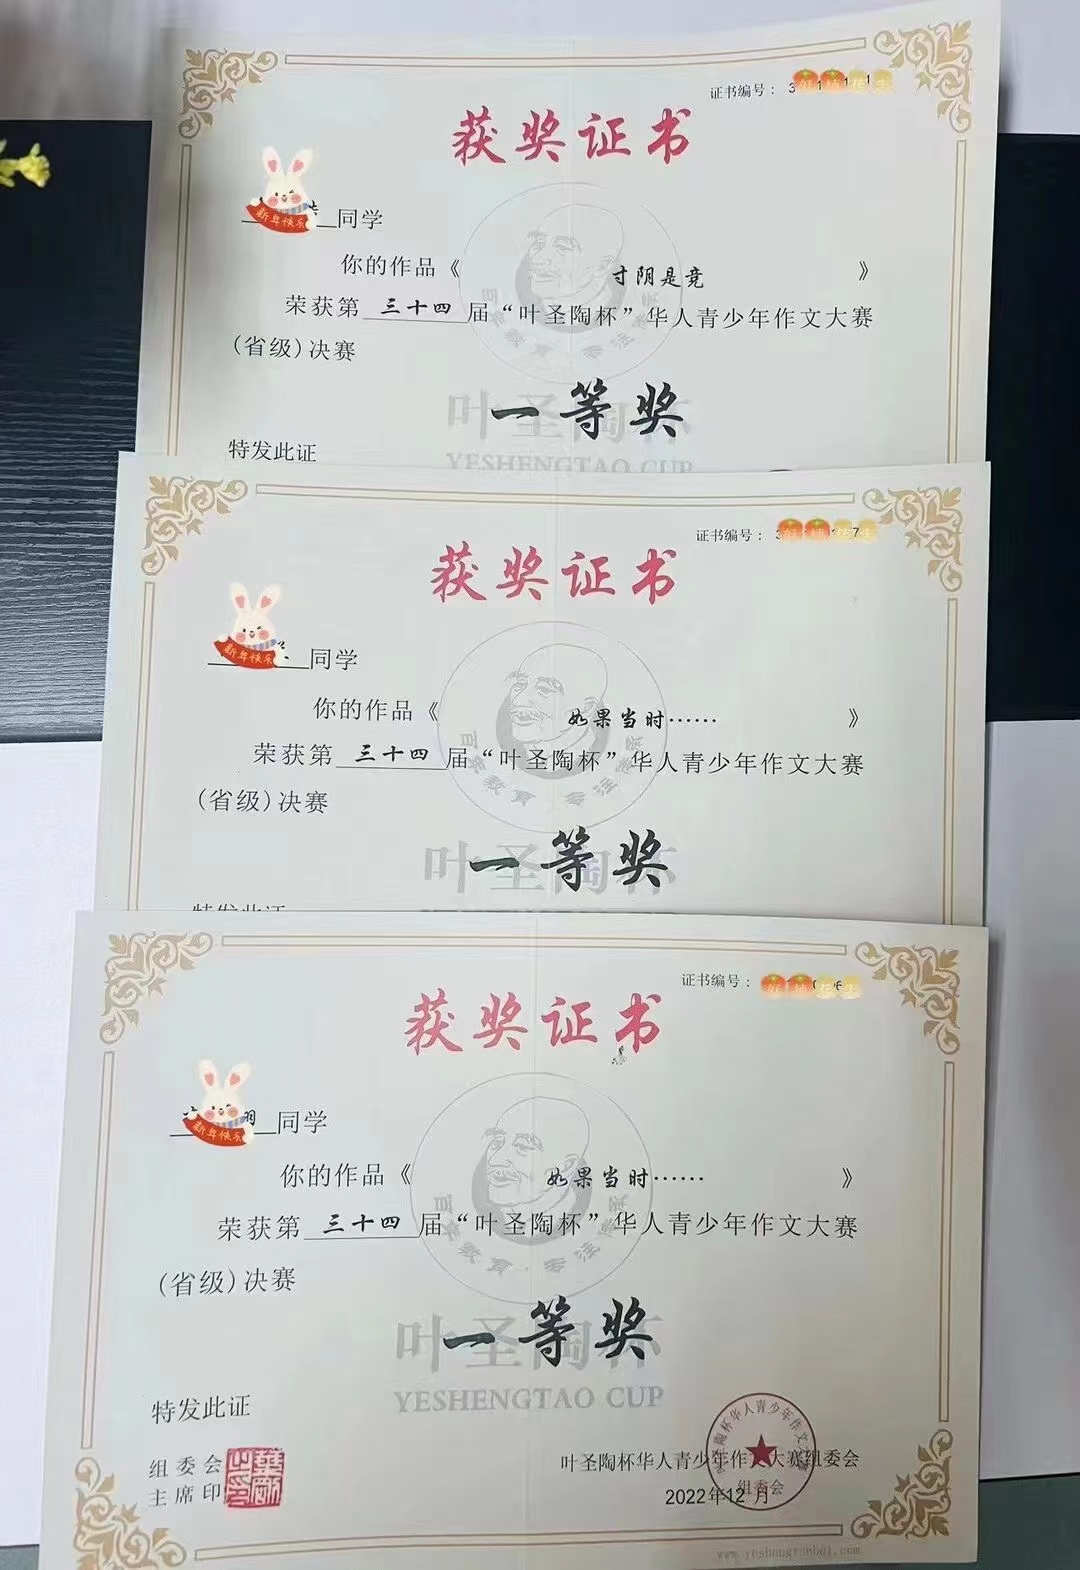 证书编号：
获奖证书
新年快乐
同学
你的作品《 寸阴是竞 》
荣获第 三十四 届“叶圣陶杯”华人青少年作文大赛
（省级）决赛
叶圣陶杯
一等奖
YESHENGTAO CUP
特发此证
证书编号：
获奖证书
新年快乐
同学
你的作品《 如果当时…… 》
荣获第 三十四 届“叶圣陶杯”华人青少年作文大赛
（省级）决赛
叶圣陶杯
一等奖
特发此证
证书编号：
获奖证书
新年快乐
同学
你的作品《 如果当时…… 》
荣获第 三十四 届“叶圣陶杯”华人青少年作文大赛
（省级）决赛
叶圣陶杯
一等奖
YESHENGTAO CUP
特发此证
组委会
主席印
叶圣陶杯华人青少年作文大赛组委会
组委会
2022年12月